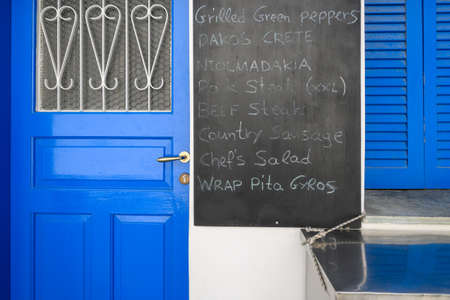 Grilled Green peppers
DAKOS CRETE
NTOLMADAKIA
Pork Steak (XXL)
BEEF Steak
Country Sausage
Chef's Salad
WRAP Pita GYROS